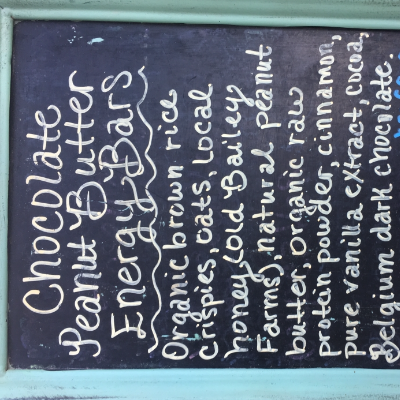 Chocolate
Peanut Butter
Energy Bars
Organic brown rice
crispies, oats, local
honey (Old Bailey
Farms), natural peanut
butter, organic raw
protein powder, cinnamon,
pure vanilla extract, cocoa,
Belgium dark chocolate.